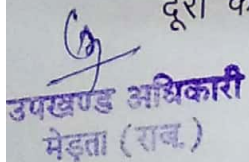 दूरी
उपखण्ड अधिकारी
मेड़ता (राज.)